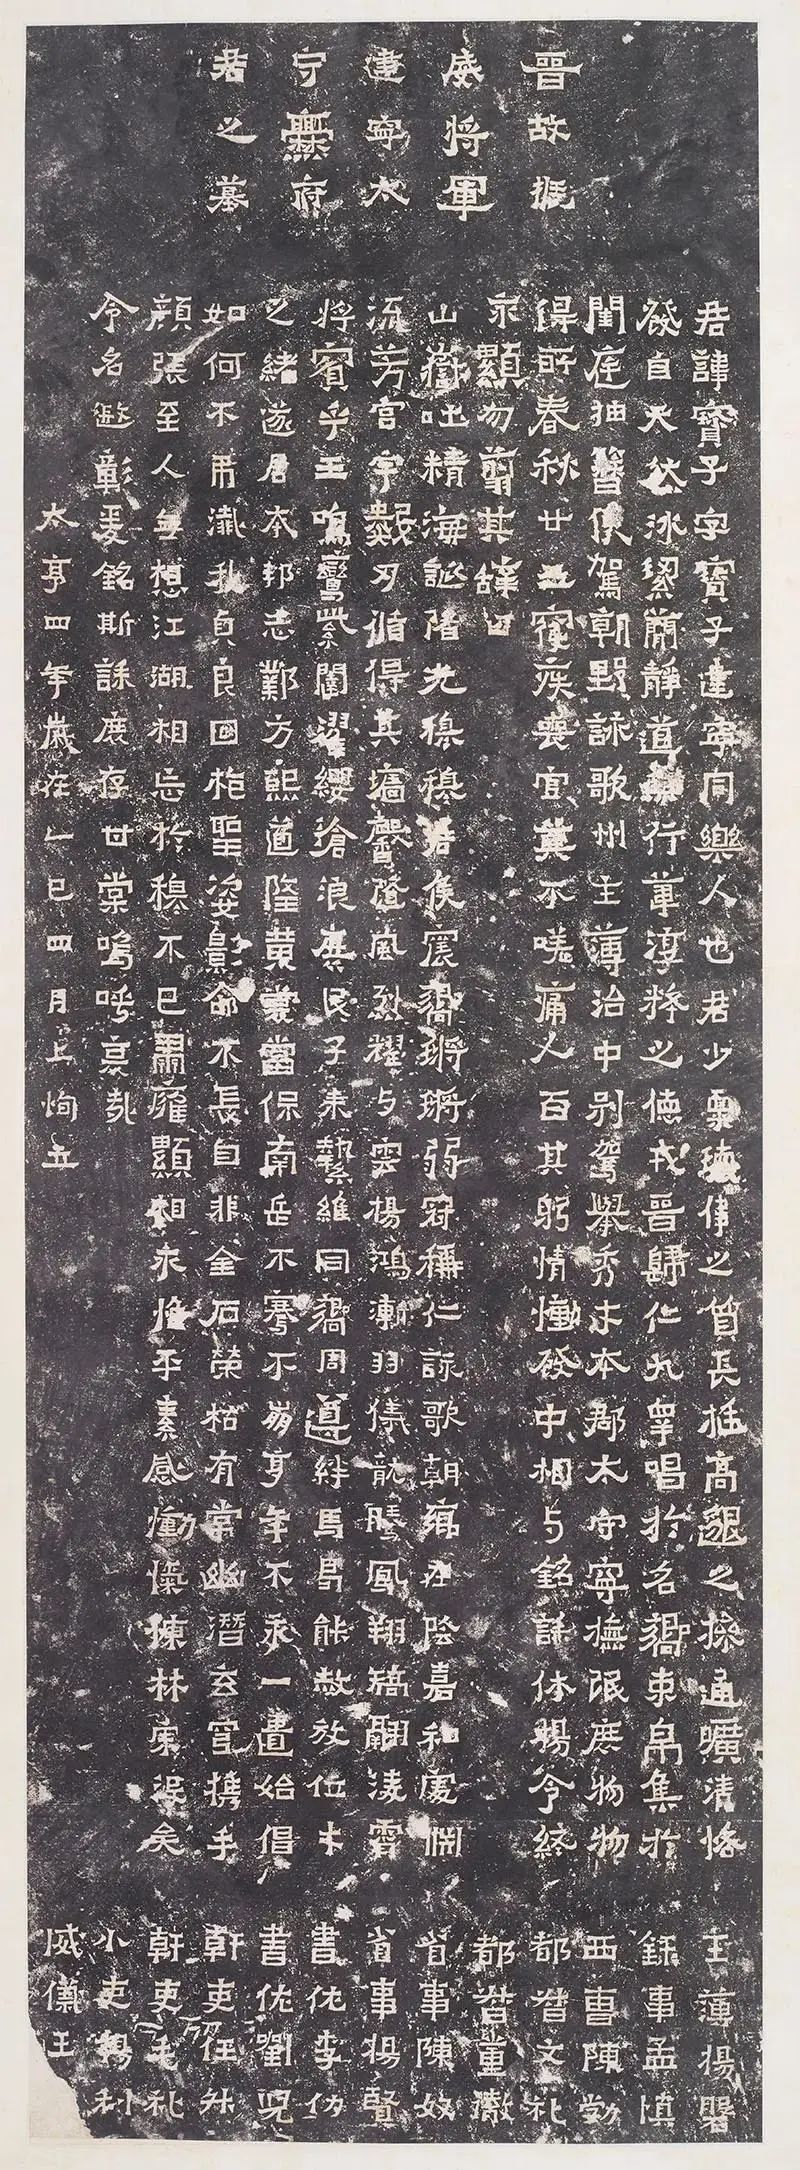 晉故振
威將軍
建寧太
守爨府
君之墓
君諱寶子字寶子建寧同樂人也君少稟瓌偉之質長挺高邈之操通曠清恪
發自天然冰絜簡靜道兼行葦淳粹之德戎晉歸仁九皋唱於名響束帛集於
閨庭抽簪俟駕朝野詠歌州主薄治中別駕舉秀才本郡太守寧撫氓庶物物
得所春秋廿五寑疾喪官莫不嗟痛人百其躬情慟發中相与銘誄休揚令終
永顯勿翦其辭曰
山嶽吐精海誕陼光穆穆君侯震響鏘鏘弱冠稱仁詠歌朝鄉在陰嘉和處淵
流芳宮宇數刃循得其墻馨隨風烈耀与雲揚鴻漸羽儀龍騰鳳翔矯翮凌霄
將賓乎王鳴鸞紫闥濯纓滄浪庶民子來縶維同響周遵絆馬曷能赦放位才
之緒遂居本邦志鄴方熙道隆黃裳當保南岳不騫不崩享年不永一匱始倡
如何不弔殲我貞良回抱聖姿影命不長自非金石榮枯有常幽潛玄穹攜手
顏張至人無想江湖相忘於穆不已肅雍顯相永惟平素感慟愾慷林宗沒矣
令名遐彰爰銘斯誄庶存甘棠嗚呼哀哉
太亨四年歲在乙巳四月上恂立
主薄揚磐
錄事孟慎
西曹陳勃
都督文礼
都督董徹
省事陳奴
省事揚賢
書佐李仂
書佐劉兒
幹吏任升
幹吏毛礼
小吏楊利
威儀王